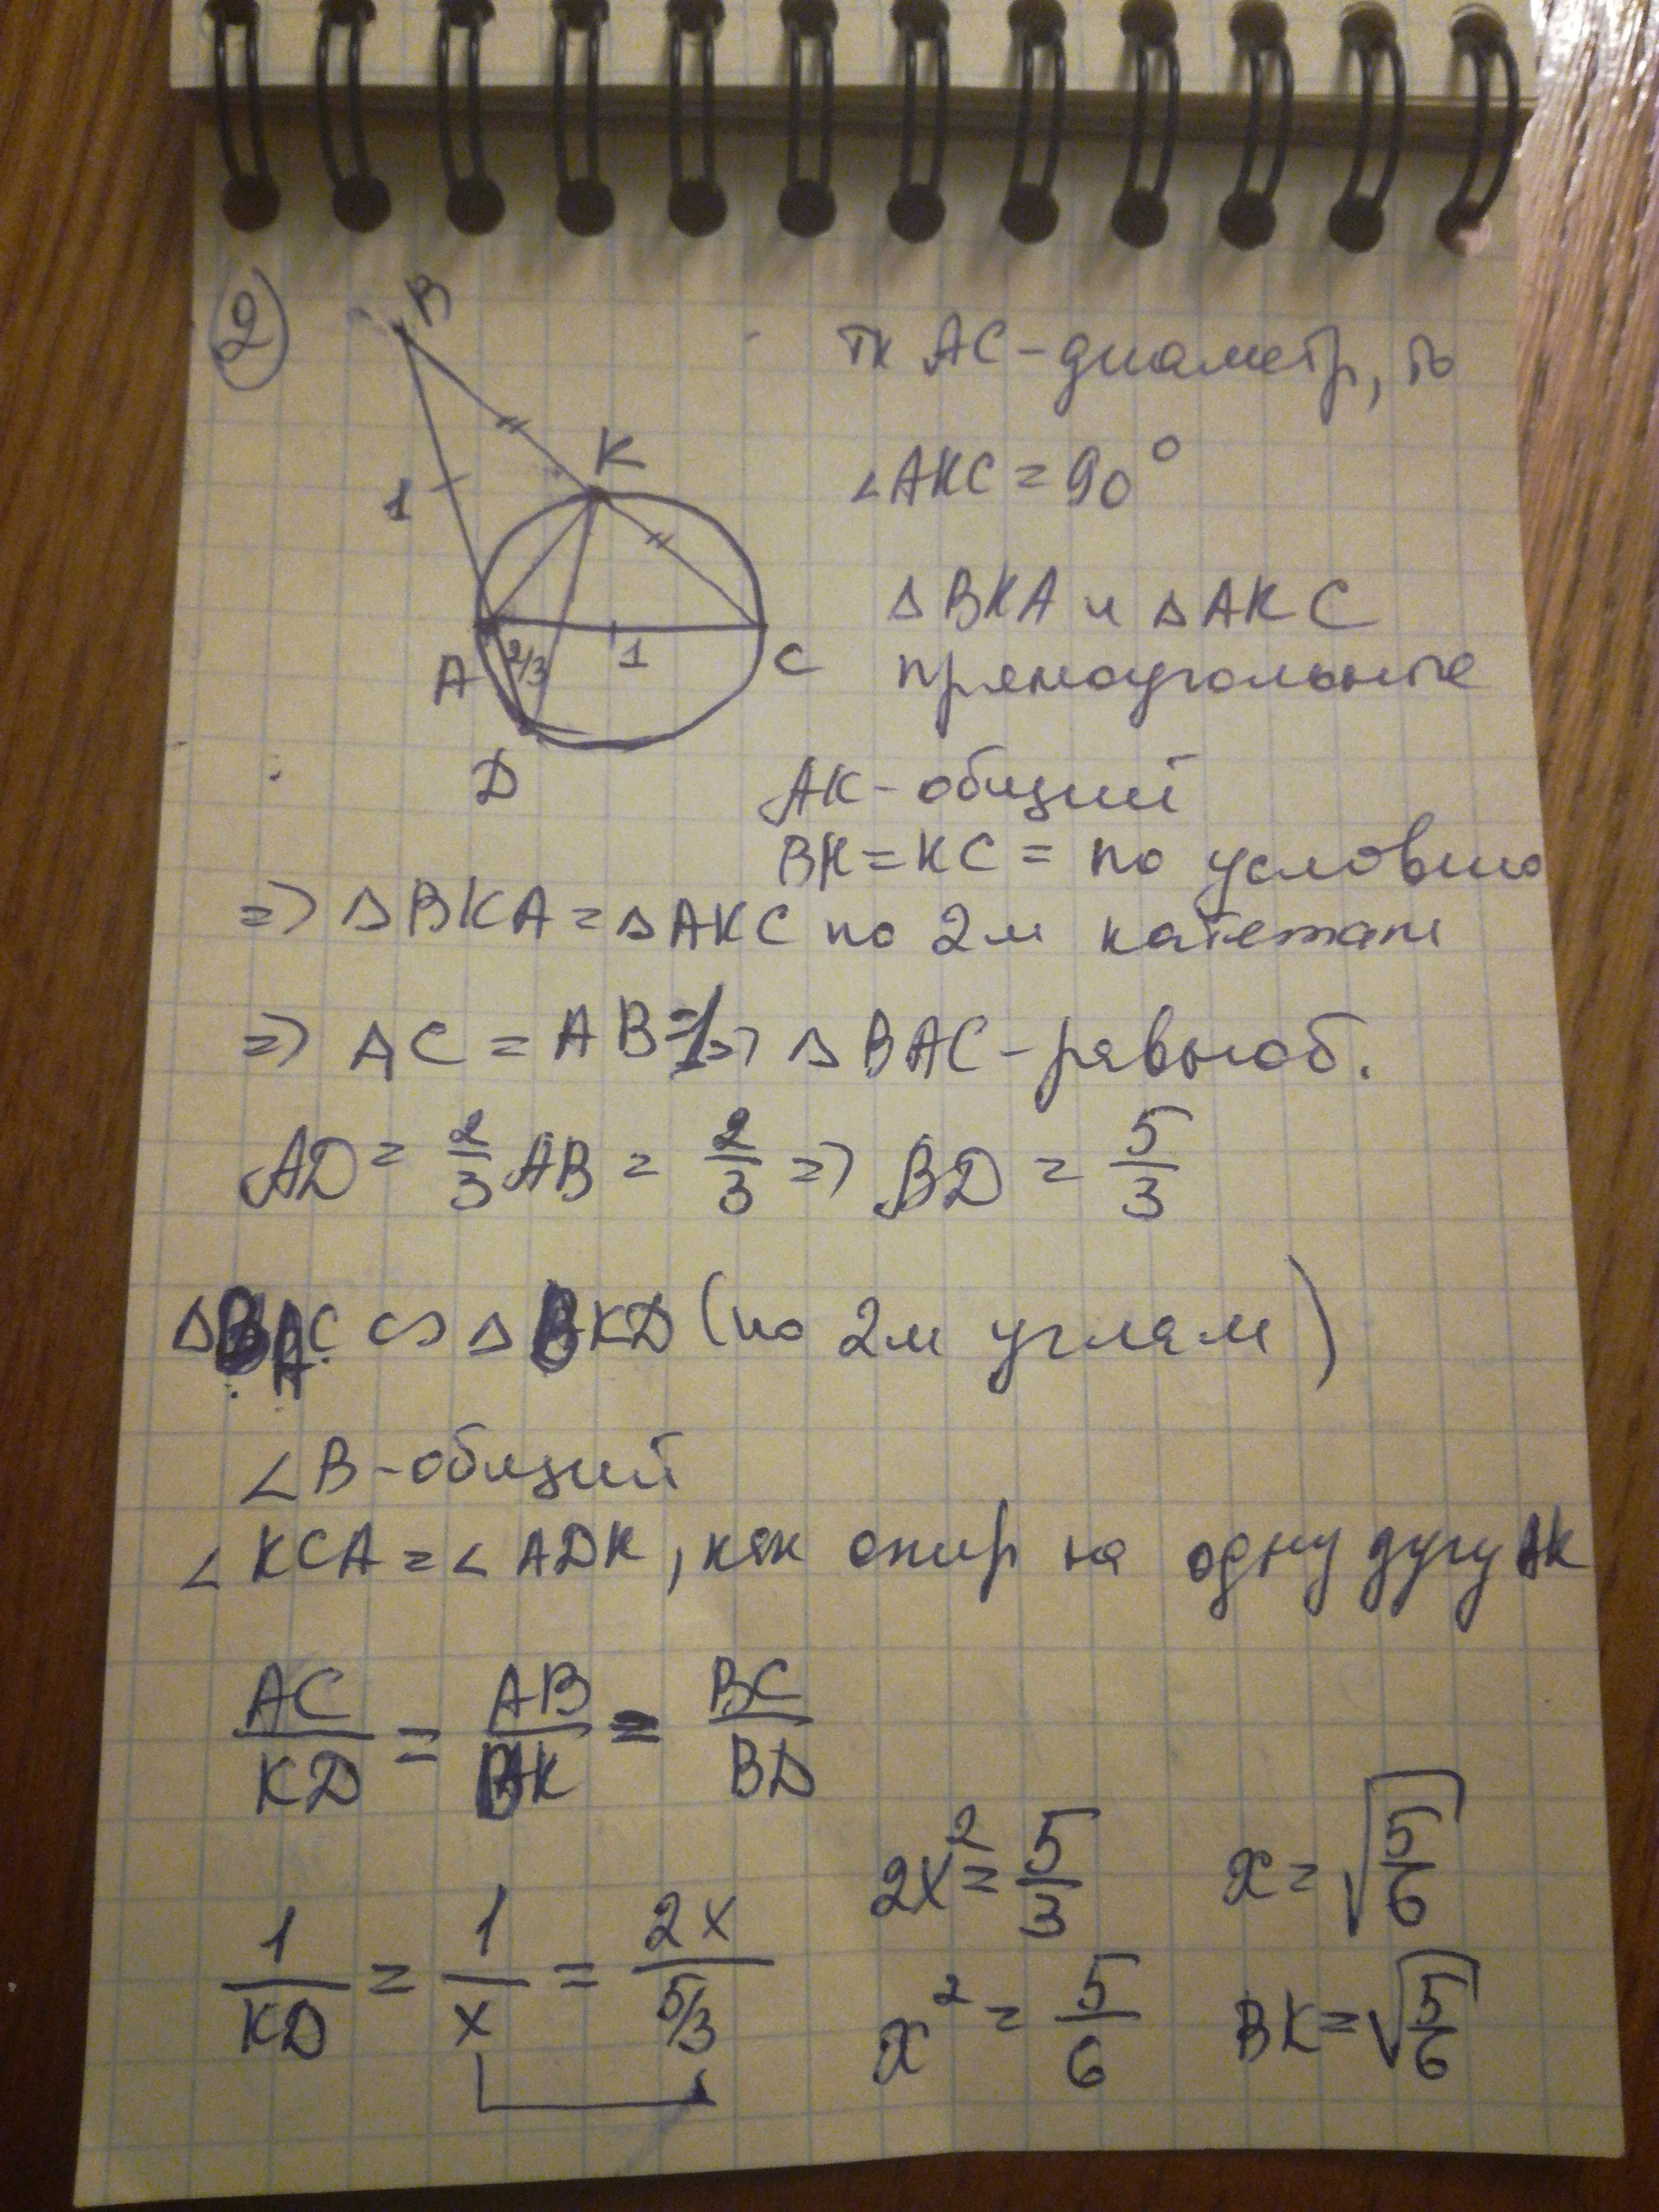 2
B
K
1
A
2/3
1
C
D
тк AC - диаметр, то
∠AKC = 90°
△BKA и △AKC
прямоугольные
AK - общий
BK = KC = по условию
=> △BKA = △AKC по 2м катетам
=> AC = AB = 1 => △BAC - равноб.
AD = 2/3 AB = 2/3 => BD = 5/3
△BAC ∽ △BKD (по 2м углам)
∠B - общий
∠KCA = ∠ADK, как опир на одну дугу AK
AC/KD = AB/BK = BC/BD
1/KD = 1/x = 2x/(5/3)
2x² = 5/3
x² = 5/6
x = √(5/6)
BK = √(5/6)